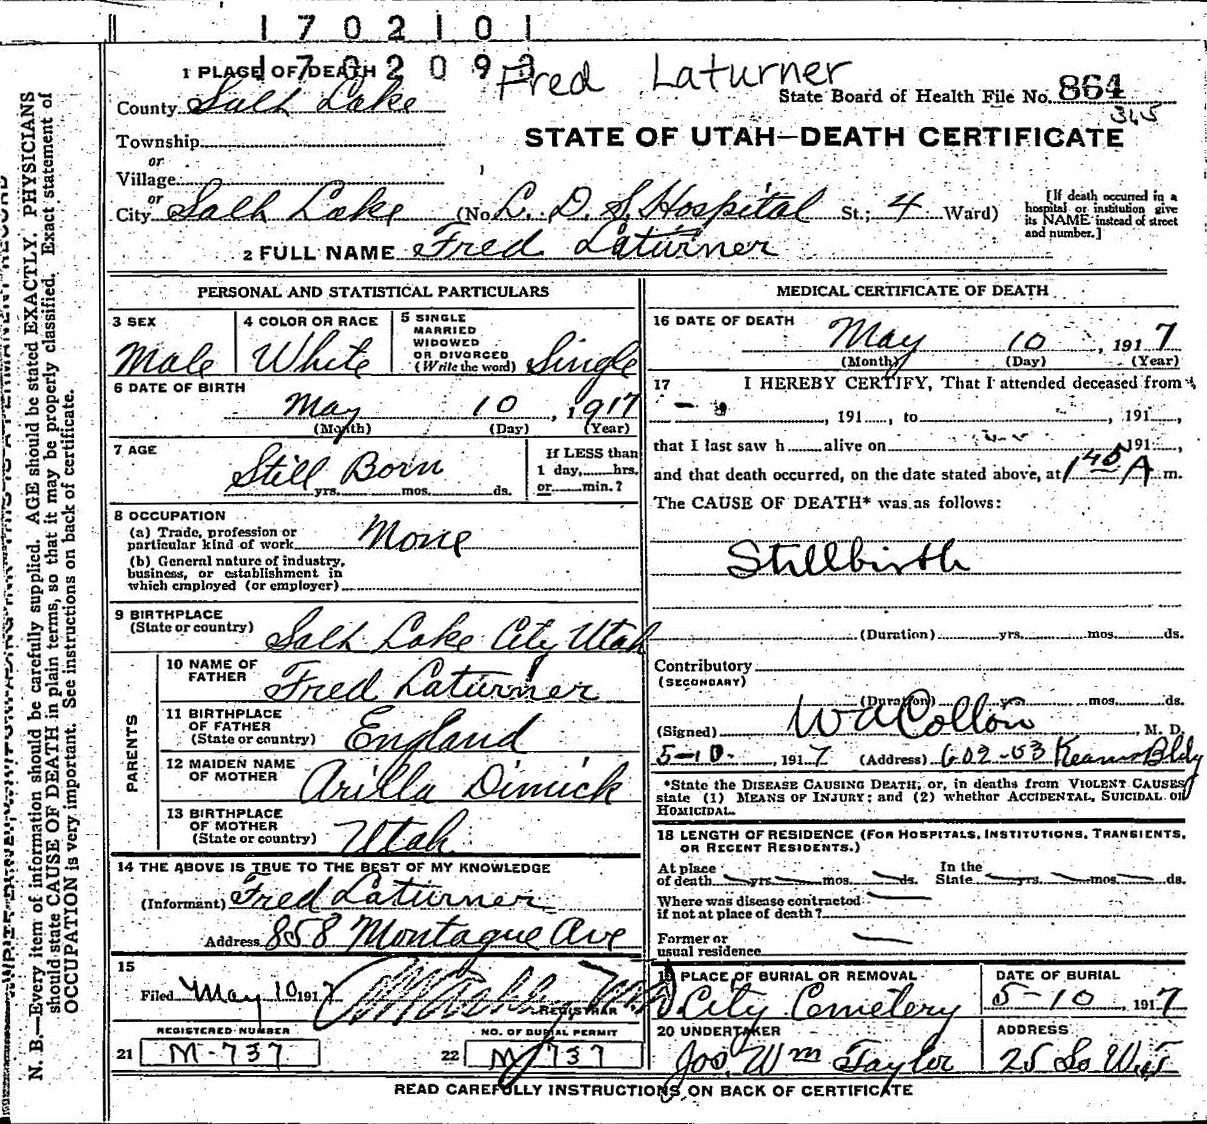 1 7 0 2 1 0 1
1 7 0 2 0 9 3
Fred Laturner
1 PLACE OF DEATH
County Salt Lake
State Board of Health File No. 864
345
Township
or
Village
or
City Salt Lake (No. L. D. S. Hospital St.; 4 Ward)
[If death occurred in a hospital or institution give its NAME instead of street and number.]
STATE OF UTAH—DEATH CERTIFICATE
2 FULL NAME Fred Laturner
PERSONAL AND STATISTICAL PARTICULARS
3 SEX
Male
4 COLOR OR RACE
White
5 SINGLE
MARRIED
WIDOWED
OR DIVORCED
(Write the word) Single
6 DATE OF BIRTH
May 10, 1917
(Month) (Day) (Year)
7 AGE
Still Born
yrs. mos. ds.
If LESS than
1 day, hrs.
or min.?
8 OCCUPATION
(a) Trade, profession or
particular kind of work None
(b) General nature of industry,
business, or establishment in
which employed (or employer)
9 BIRTHPLACE
(State or country) Salt Lake City Utah
PARENTS
10 NAME OF
FATHER Fred Laturner
11 BIRTHPLACE
OF FATHER
(State or country) England
12 MAIDEN NAME
OF MOTHER Arilla Dimick
13 BIRTHPLACE
OF MOTHER
(State or country) Utah
14 THE ABOVE IS TRUE TO THE BEST OF MY KNOWLEDGE
(Informant) Fred Laturner
Address 858 Montague Ave
15
Filed May 10 1917
REGISTRAR
REGISTERED NUMBER
21 M-737
NO. OF BURIAL PERMIT
22 M 737
MEDICAL CERTIFICATE OF DEATH
16 DATE OF DEATH May 10, 1917
(Month) (Day) (Year)
17 I HEREBY CERTIFY, That I attended deceased from
, 191, to , 191,
that I last saw h alive on 191,
and that death occurred, on the date stated above, at 1 45 A m.
The CAUSE OF DEATH* was as follows:
Stillbirth
(Duration) yrs. mos. ds.
Contributory
(SECONDARY)
(Duration) yrs. mos. ds.
(Signed) , M. D.
5-10-, 1917 (Address) 602-03 Kearns Bldg
*State the DISEASE CAUSING DEATH, or, in deaths from VIOLENT CAUSES,
state (1) MEANS OF INJURY; and (2) whether ACCIDENTAL, SUICIDAL OR
HOMICIDAL.
18 LENGTH OF RESIDENCE (FOR HOSPITALS, INSTITUTIONS, TRANSIENTS,
OR RECENT RESIDENTS.)
At place
of death yrs. mos. ds.
In the
State yrs. mos. ds.
Where was disease contracted
if not at place of death?
Former or
usual residence
19 PLACE OF BURIAL OR REMOVAL
City Cemetery
DATE OF BURIAL
5-10, 1917
20 UNDERTAKER
Jos. Wm Taylor
ADDRESS
25 So West
READ CAREFULLY INSTRUCTIONS ON BACK OF CERTIFICATE
N. B.—Every item of information should be carefully supplied. AGE should be stated EXACTLY. PHYSICIANS
should state CAUSE OF DEATH in plain terms, so that it may be properly classified. Exact statement of
OCCUPATION is very important. See instructions on back of certificate.